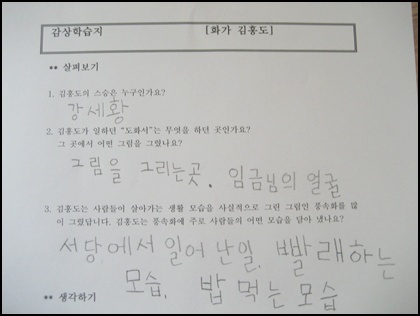 감상학습지 [화가 김홍도]
** 살펴보기
1. 김홍도의 스승은 누구인가요?
강세황
2. 김홍도가 일하던 "도화서"는 무엇을 하던 곳인가요?
그 곳에서 어떤 그림을 그렸나요?
그림을 그리는곳. 임금님의 얼굴
3. 김홍도는 사람들이 살아가는 생활 모습을 사실적으로 그린 그림인 풍속화를 많
이 그렸답니다. 김홍도는 풍속화에 주로 사람들의 어떤 모습을 담아 냈나요?
서당에서 일어난일. 빨래하는
모습. 밥 먹는 모습
** 생각하기